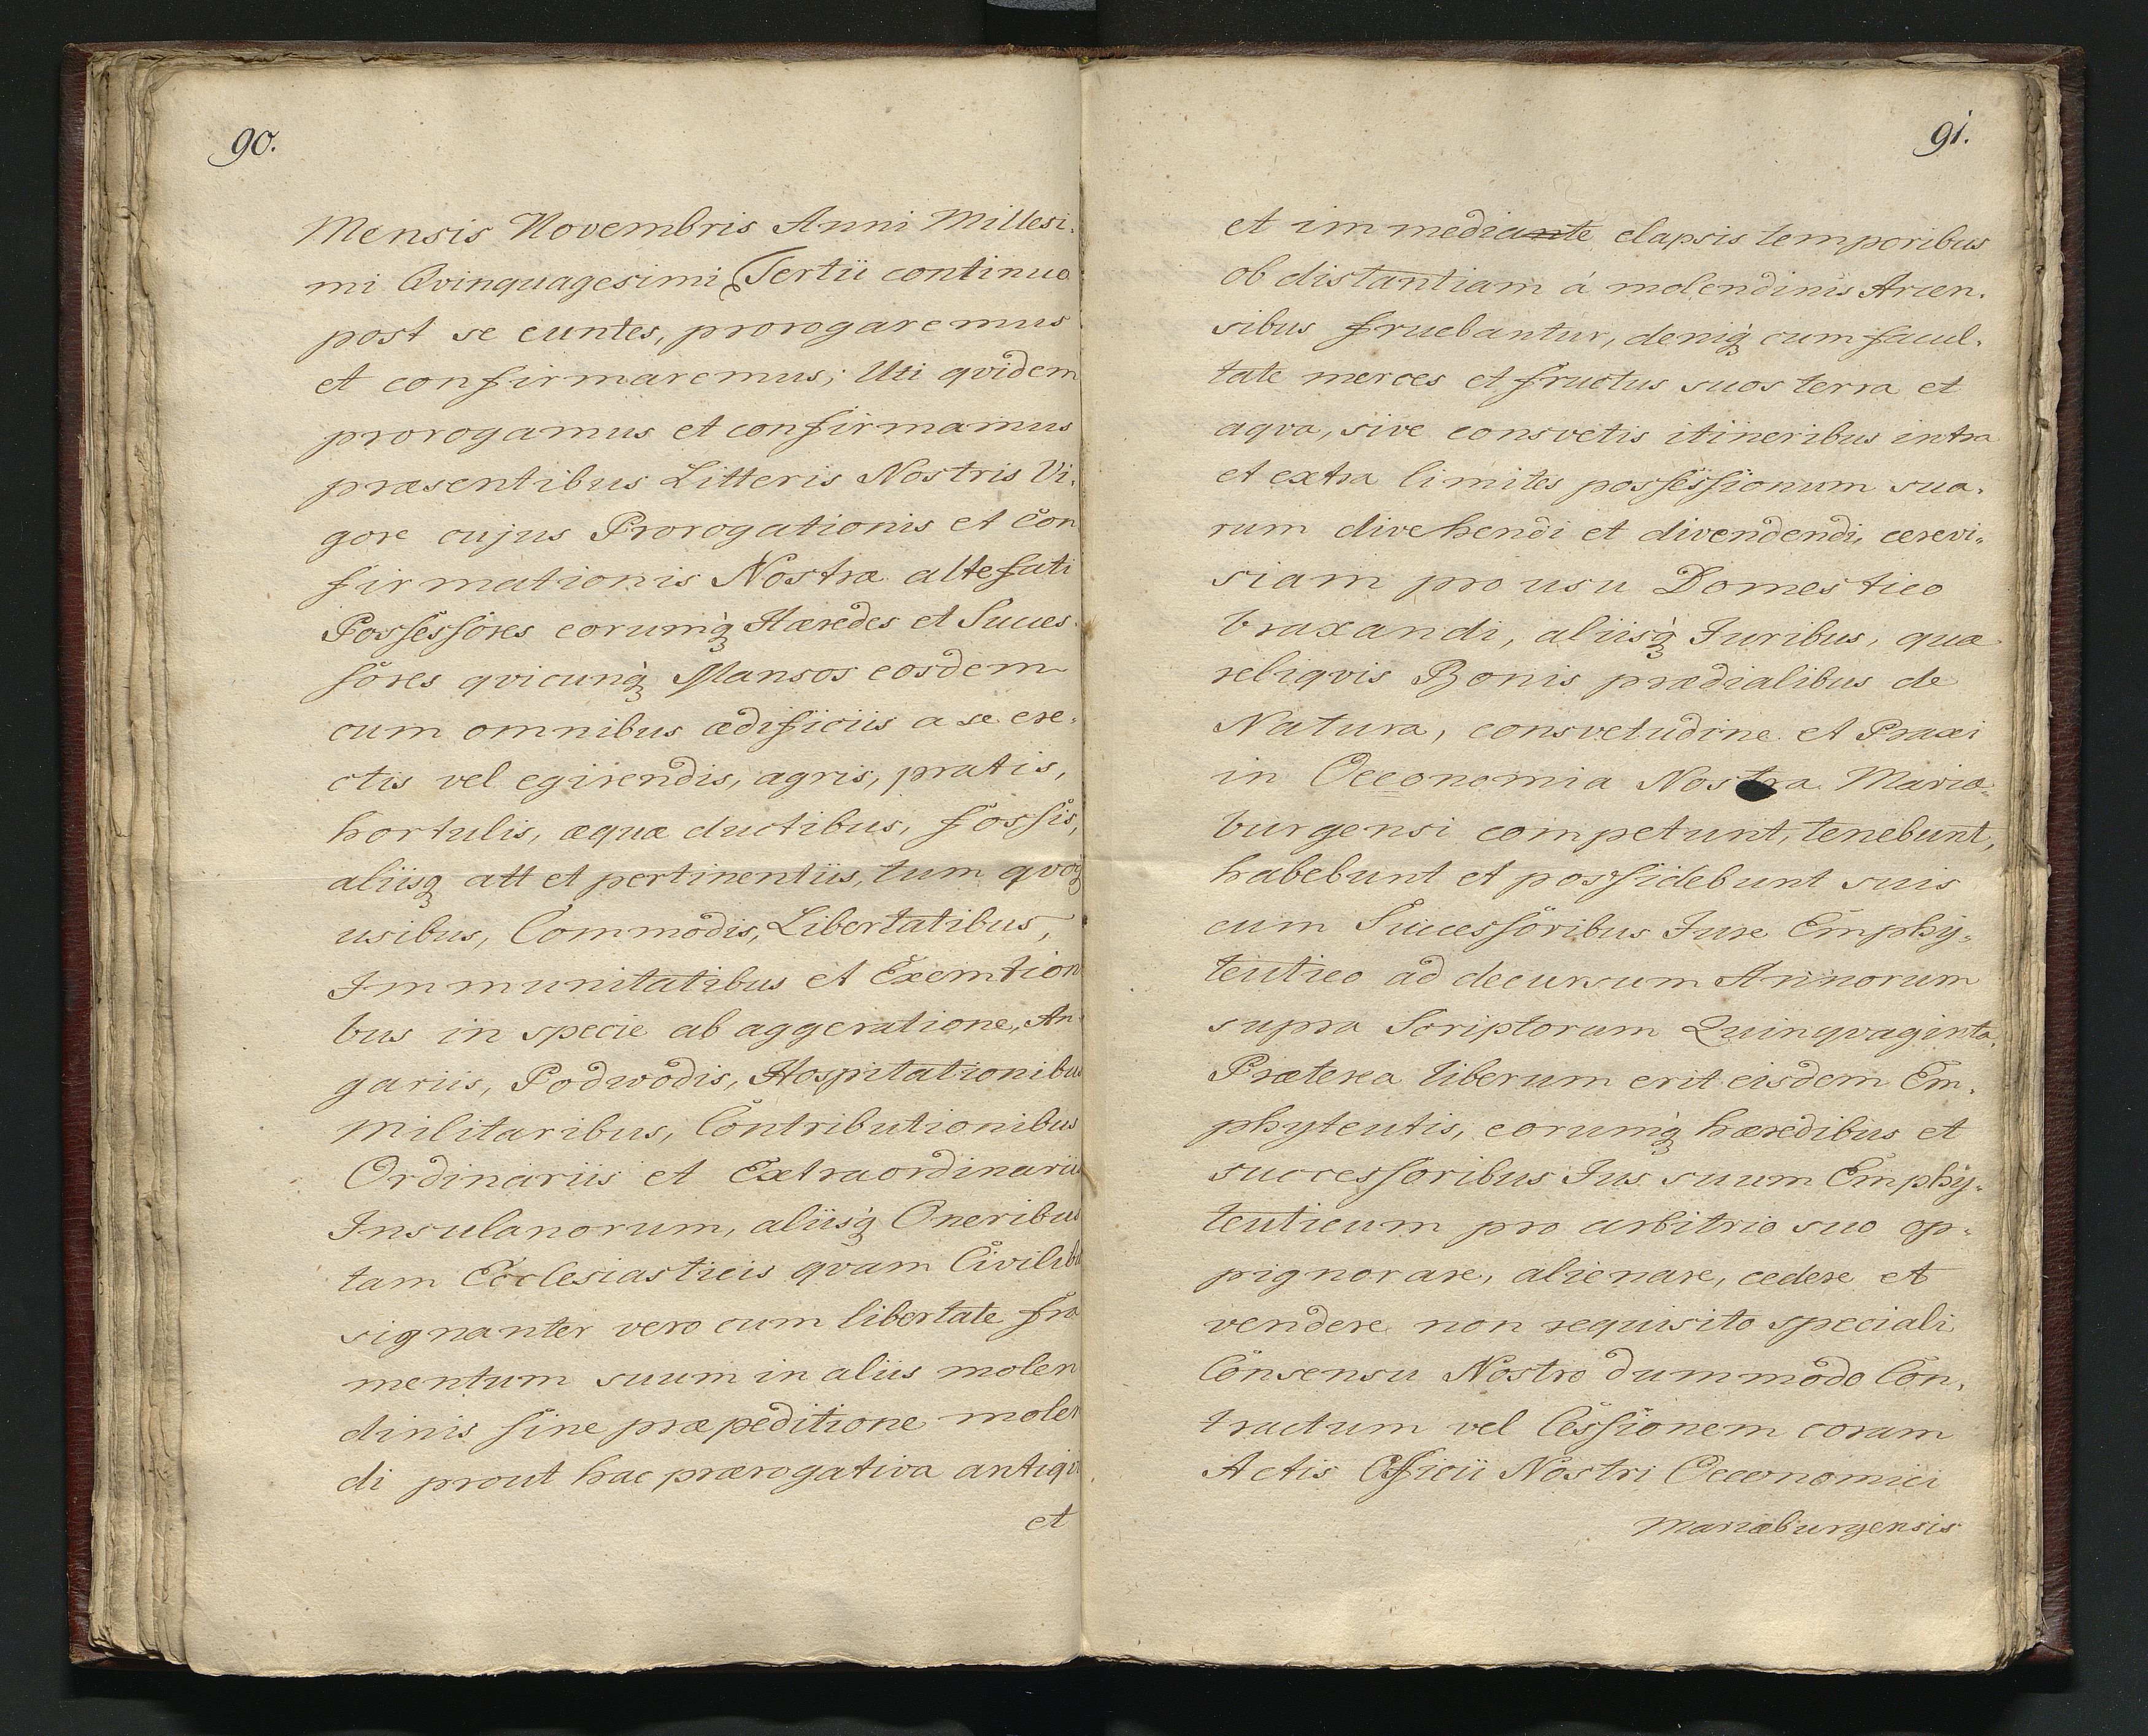 90.
Mensis Novembris Anni Millesi.
mi Qvinquagesimi Tertii continuo
post se euntes, prorogaremus
et confirmaremus; Uti qvidem
prorogamus et confirmamus
præsentibus Litteris Nostris Vi.
gore cujus Prorogationis et Con
firmationis Nostræ altefati
Possessores eorumq́ Hæredes et Succes.
sores qvicunq́ Mansos eosdem
cum omnibus ædificiis a se ere.
ctis vel egirendis, agris, pratis,
hortulis, æquæ ductibus, fossis,
aliisq att et pertinentiis, tum qvoq
usibus, Commodis, Libertatibus,
Immunitatibus et Exemtion
bus in specie ab aggeratione, An.
gariis, Podwodis, Hospitationibus
Militaribus, Contributionibus
Ordinariis et Extraordinariis
Insulanorum, aliisq́ Oneribus
tam Ecclesiasticis qvam Civilibus
signanter vero cum libertate fra
mentum suum in aliis molen
dinis sine præpeditione molen
di prout hac prærogativa antiqui
et
91.
et immediante elapsis temporibus
ob distantiam á molendinis Arcen.
sibus fruebantur, deniq́ cum facul.
tate merces et fructus suos terra et
aqva, sive consvetis itineribus intra
et extra limites possessionum sua.
rum divehendi et divendendi, cerevi.
siam pro usu Domestico
braxandi, aliisq́ Juribus, quæ
reliqvis Bonis prædialibus de
Natura, consvetudine et Praxi
in Oeconomia Nostra Mariæ.
burgensi competunt, tenebunt,
habebunt et possidebunt suis
cum Successoribus Jure Emphy.
teutico ad decursum Annorum
supra Scriptorum Quinqvaginta.
Præterea liberum erit eisdem Em.
phyteutis, eorumq́ hæredibus et
successoribus Jus suum Emphy.
teuticum pro arbitrio suo op.
pignorare, alienare, cedere et
vendere non requisito speciali
Consensu Nostro dummodo Con.
tractum vel Cessionem coram
Actis Officii Nostri Oeconomici
Mariæburgensis